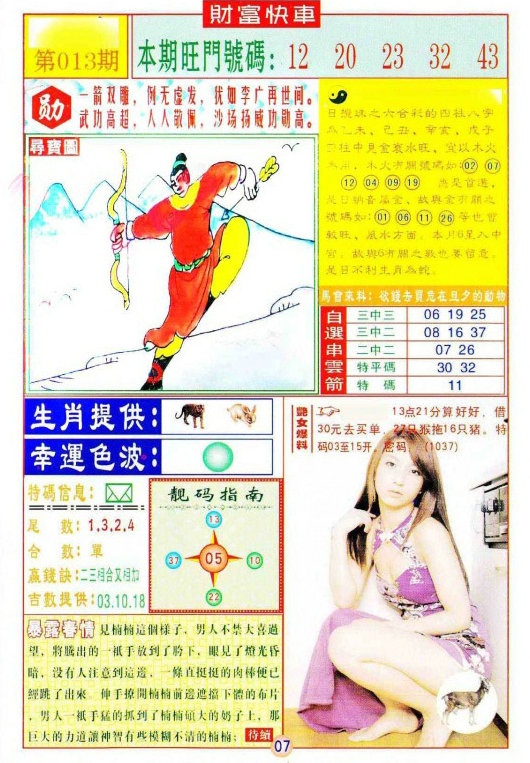 財富快車
第013期
本期旺門號碼: 12 20 23 32 43
勋
一箭双雕，例无虚发，犹如李广再世间。
武功高超，人人敬佩，沙场扬威功勋高。
尋寶圖
日攪珠之六合彩的四柱八字
為乙未、己丑、辛亥、戊子
四柱中見金寒水旺，宜以木火
為用，木火有關號碼如 02 07
12 04 09 19 應是首選，
是日納音屬金，故與金有關之
號碼如: 01 06 11 26 等也當
較旺，風水方面，本月6星入中
宮，故與6有關之數也要留意，
是日不利生肖為蛇。
馬會來料: 欲錢去買危在旦夕的動物
自選串雲箭
三中三 06 19 25
三中二 08 16 37
二中二 07 26
特平碼 30 32
特 碼 11
生肖提供:
幸運色波:
特碼信息:
尾 數: 1,3,2,4
合 數: 單
贏錢訣: 二三相合又相加
吉數提供: 03.10.18
靚码指南
13
37 05 10
22
艷女爆料
13点21分算好好，借
30元去买单，27只猴拖16只猪。特
码03至15开，密码：(1037)
暴露春情 見楠楠這個樣子，男人不禁大喜過
望，將騰出的一祇手放到了胯下，眼見了燈光昏
暗，没有人注意到這邊，一條直挺挺的肉棒便已
經跳了出來，伸手撩開楠楠前邊遮擋下體的布片
，男人一祇手猛的抓到了楠楠碩大的奶子上，那
巨大的力道讓神智有些模糊不清的楠楠; 待續
07